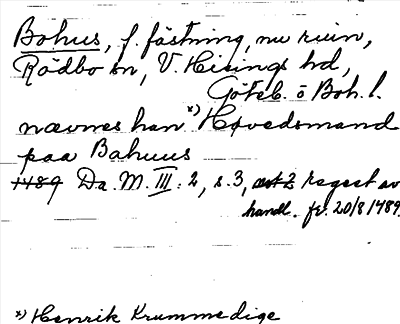 Bohus, f. fästning, nu ruin,
Rödbo sn, V. Hisings hd,
Göteb. o Boh. l.
nævnes han x) Høvedsmand
paa Bahuus
1489 Da. M. III. 2, s. 3, regest av
handl. fr. 20/8 1489.
x) Henrik Krummedige